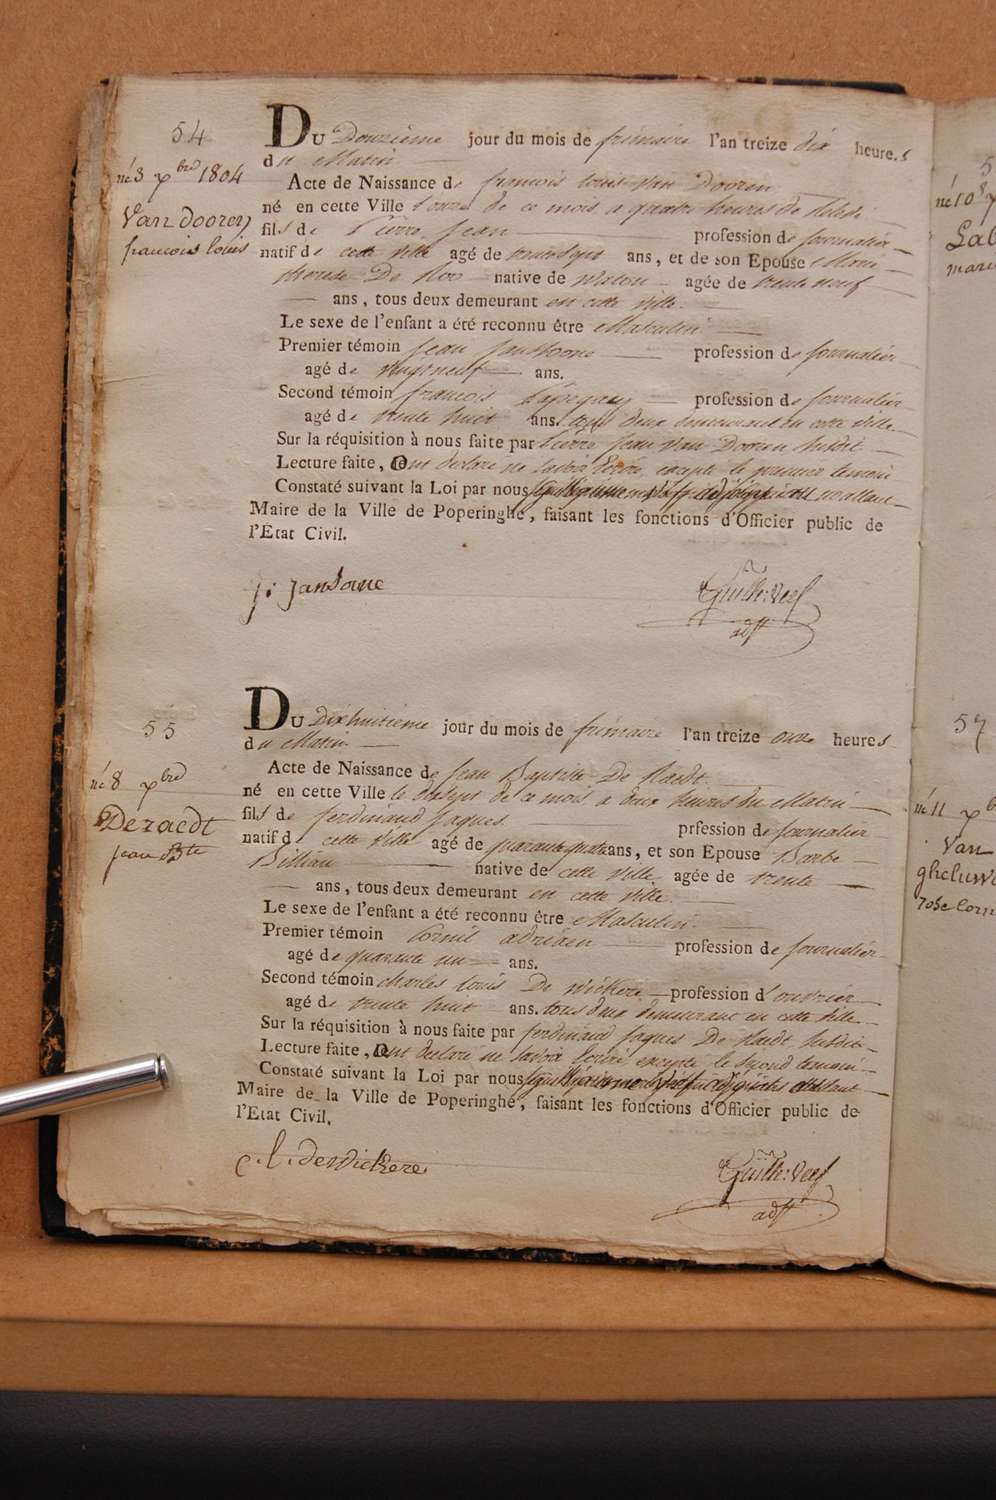 54
né 3 xbre 1804
Van dooren
francois louis
Du Douzième jour du mois de frimaire l'an treize dix heures
du Matin
Acte de Naissance de francois louis Van Dooren
né en cette Ville l'onze de ce mois a quatre heures de
fils de Pierre Jean profession de journalier
natif de cette ville agé de ans, et de son Epouse Marie
therese De Roo native de agée de trente neuf
ans, tous deux demeurant en cette ville.
Le sexe de l'enfant a été reconnu être Masculin
Premier témoin Jean Janssone profession de journalier
agé de vingt neuf ans.
Second témoin francois profession de journalier
agé de trente huit ans. tous deux demeurant en cette ville
Sur la réquisition à nous faite par Pierre Jean Van Dooren susdit
Lecture faite, ont declaré ne savoir écrire excepté le premier temoin
Constaté suivant la Loi par nous
Maire de la Ville de Poperinghe, faisant les fonctions d'Officier public de
l'État Civil.
J: Jansoone
Guilh: Veel
adjt
55
né 8 xbre
Deraedt
jean Bte
Du Dixhuitième jour du mois de frimaire l'an treize onze heures
du Matin
Acte de Naissance de Jean Baptiste De Raedt
né en cette Ville le dixsept de ce mois a deux heures du Matin
fils de ferdinand Jaques prfession de journalier
natif de cette ville agé de quarante quatre ans, et son Epouse Barbe
Billiau native de cette Ville agée de trente
ans, tous deux demeurant en cette ville.
Le sexe de l'enfant a été reconnu être Masculin.
Premier témoin Cornil adriaen profession de journalier
agé de quarante un ans.
Second témoin charles louis De Wickere profession d'ouvrier
agé de trente huit ans. tous deux demeurant en cette ville
Sur la réquisition à nous faite par ferdinand Jaques De Raedt susdit
Lecture faite, ont declaré ne savoir écrire excepté le second temoin
Constaté suivant la Loi par nous
Maire de la Ville de Poperinghe, faisant les fonctions d'Officier public de
l'État Civil.
C. l. dewickere
Guilh: Veel
adjt
né 10
57
né 11 xb
Van
gheluwe
rose corn